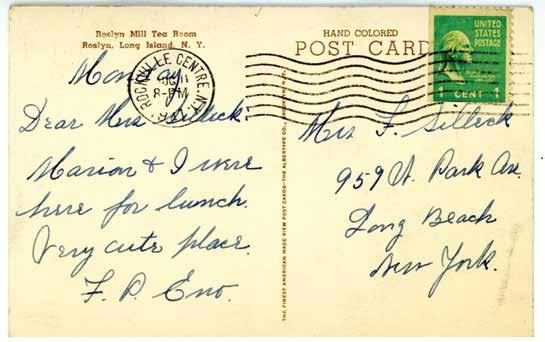 Roslyn Mill Tea Room
Roslyn, Long Island, N. Y.
Monday
Dear Mrs Silleck
Marion & I were
here for lunch.
Very cute place.
F. P. Eno.
ROCKVILLE CENTRE, N.Y.
8-PM
THE FINEST AMERICAN MADE VIEW POST CARDS—THE ALBERTYPE CO.,
HAND COLORED
POST CARD
UNITED
STATES
POSTAGE
1 CENT 1
Mrs F. Silleck
959 W. Park Ave.
Long Beach
New York.